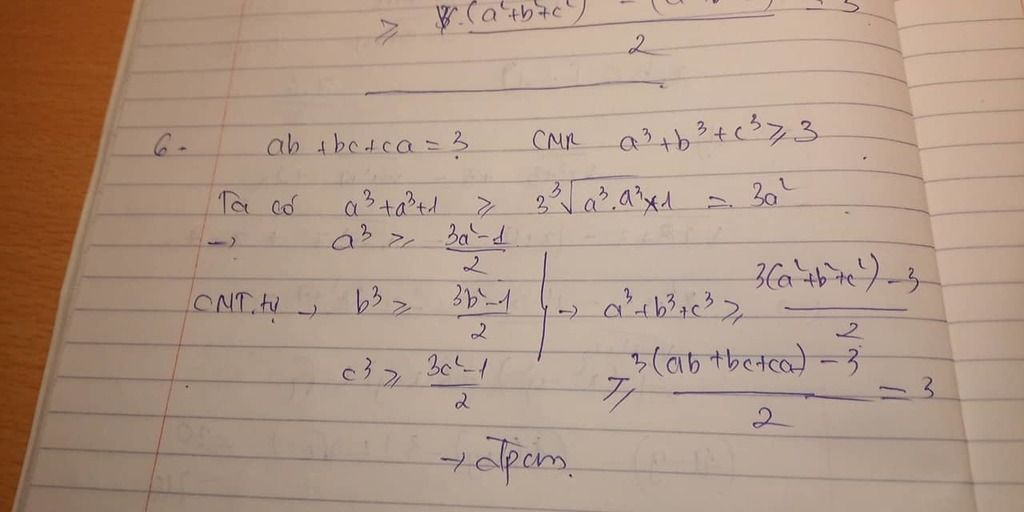 ≥ (a²+b²+c²)
2
6. ab + bc + ca = 3 CMR a³ + b³ + c³ ≥ 3
Ta có a³ + a³ + 1 ≥ 3∛(a³.a³×1) = 3a²
→ a³ ≥ (3a²-1)/2
CMT.tự → b³ ≥ (3b²-1)/2 → a³+b³+c³ ≥ (3(a²+b²+c²) - 3)/2
c³ ≥ (3c²-1)/2 ≥ (3(ab+bc+ca) - 3)/2 = 3
→ đpcm.